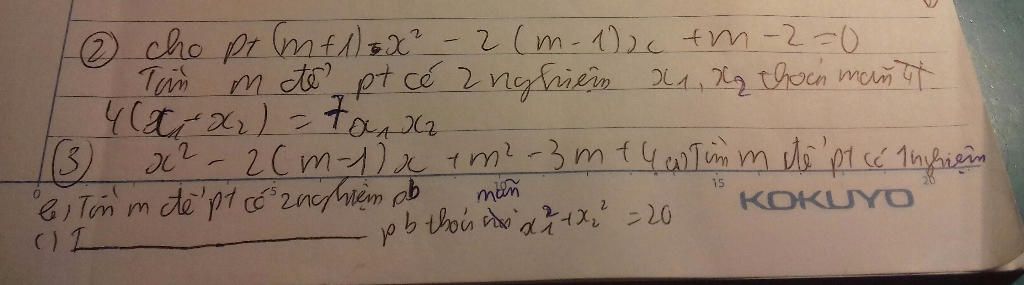 ② cho pt (m+1)x² - 2(m-1)x + m - 2 = 0
Tìm m để pt có 2 nghiệm x₁, x₂ thoả mãn
4(x₁ + x₂) = 7x₁x₂
③ x² - 2(m-1)x + m² - 3m + 4 a) Tìm m để pt có 1 nghiệm
b) Tìm m để pt có 2 nghiệm pb
c) pb thoả mãn x₁² + x₂² = 20
0 5 15 20
KOKUYO